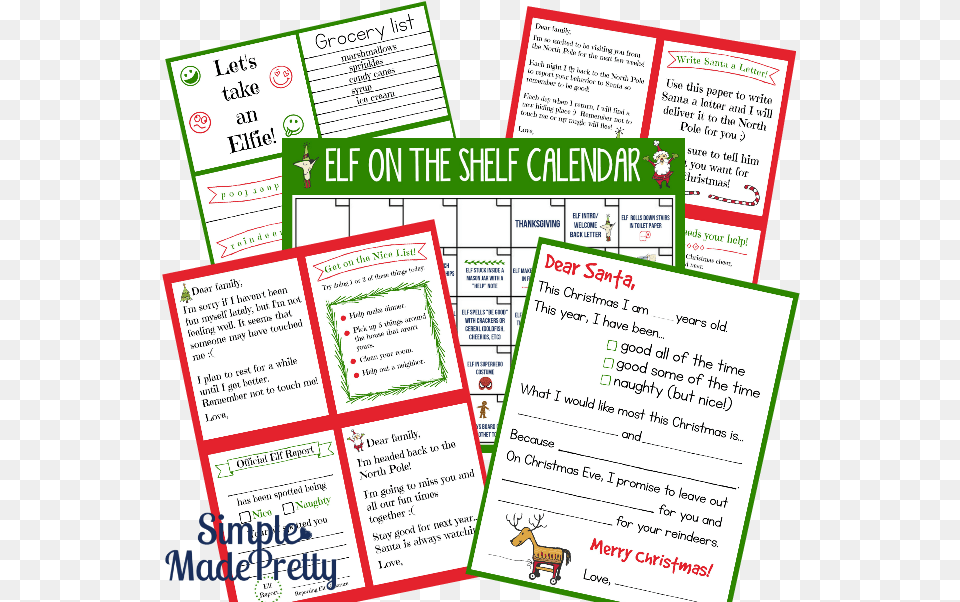 Let's
take
an
Elfie!
Grocery list
marshmallows
sprinkles
candy canes
syrup
ice cream
Dear family,
I'm so excited to be visiting you from
the North Pole for the next ten weeks!
Each night I fly back to the North Pole
to report your behavior to Santa so
remember to be good!
Each day when I return, I will find a
new hiding place :) Remember not to
touch me or my magic will die!
Love,
Write Santa a Letter!
Use this paper to write
Santa a letter and I will
deliver it to the North
Pole for you :)
sure to tell him
you want for
Christmas!
reindeer
needs your help!
Christmas cheer.
ELF ON THE SHELF CALENDAR
THANKSGIVING
ELF INTRO/
WELCOME
BACK LETTER
ELF ROLLS DOWN STAIRS
IN TOILET PAPER
ELF STUCK INSIDE A
MASON JAR WITH A
"HELP" NOTE
ELF MAK
ELF SPELLS "BE GOOD"
WITH CRACKERS OR
CEREAL (GOLDFISH,
CHEERIOS, ETC)
ELF IN SUPERHERO
COSTUME
Dear family,
I'm sorry if I haven't been
fun myself lately, but I'm not
feeling well. It seems that
someone may have touched
me :(
I plan to rest for a while
until I get better.
Remember not to touch me!
Love,
Get on the Nice List!
Try doing 1 or 2 of these things today
Help make dinner
Pick up 5 things around
the house that aren't
yours.
Clean your room.
Help out a neighbor.
Official Elf Report
has been spotted being
Nice
Naughty
you
Elf
Report
Reporting Elf Signature
Dear family,
I'm headed back to the
North Pole!
I'm going to miss you and
all our fun times
together :(
Stay good for next year...
Santa is always watchi
Love,
Dear Santa,
This Christmas I am ___ years old.
This year, I have been...
good all of the time
good some of the time
naughty (but nice!)
What I would like most this Christmas is...
and
Because
On Christmas Eve, I promise to leave out
for you and
for your reindeers.
Merry Christmas!
Love,
Simple
Made Pretty